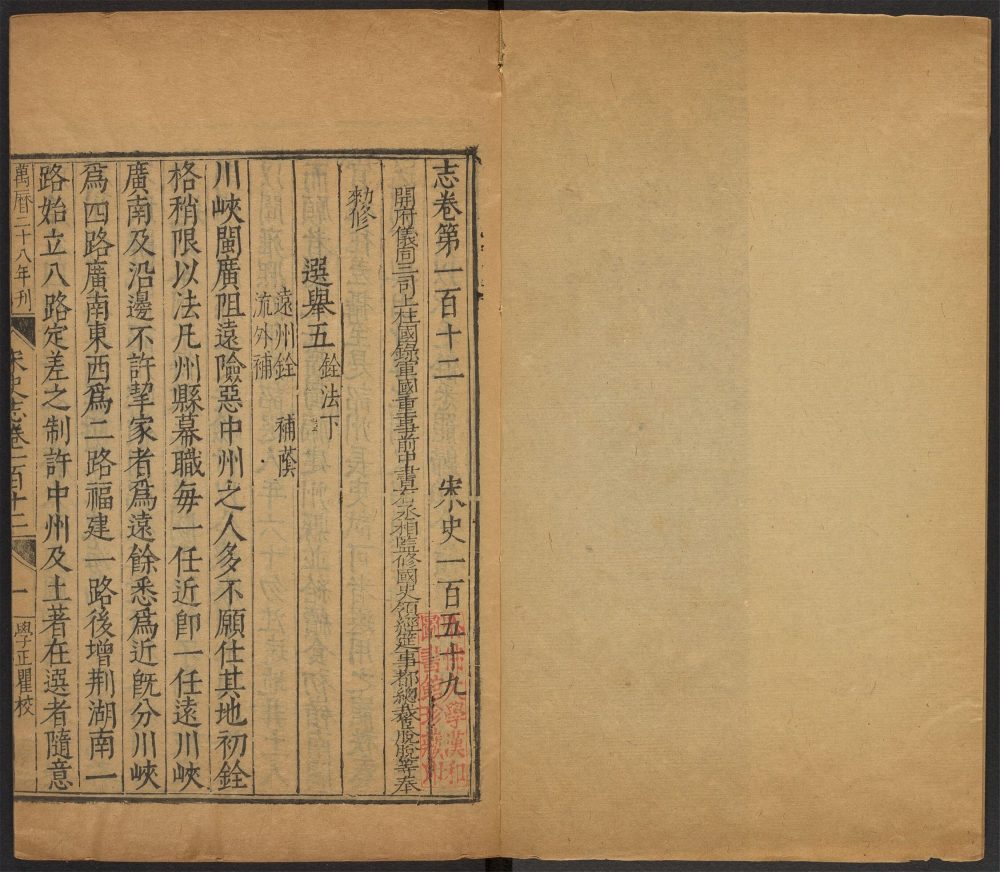 志卷第一百十二 宋史一百五十九
開府儀同三司上柱國錄軍國重事前中書右丞相監修國史領經筵事都總裁脫脫等奉
勑修
選舉五 銓法下
遠州銓 補蔭
流外補
川峽閩廣阻遠險惡中州之人多不願仕其地初銓
格稍限以法凡州縣幕職每一任近卽一任遠川峽
廣南及沿邊不許挈家者爲遠餘悉爲近旣分川峽
爲四路廣南東西爲二路福建一路後增荆湖南一
路始立八路定差之制許中州及土著在選者隨意
萬曆二十八年刊
宋史志卷一百十二
一
學正瞿校
學漢和
圖書館珍藏印